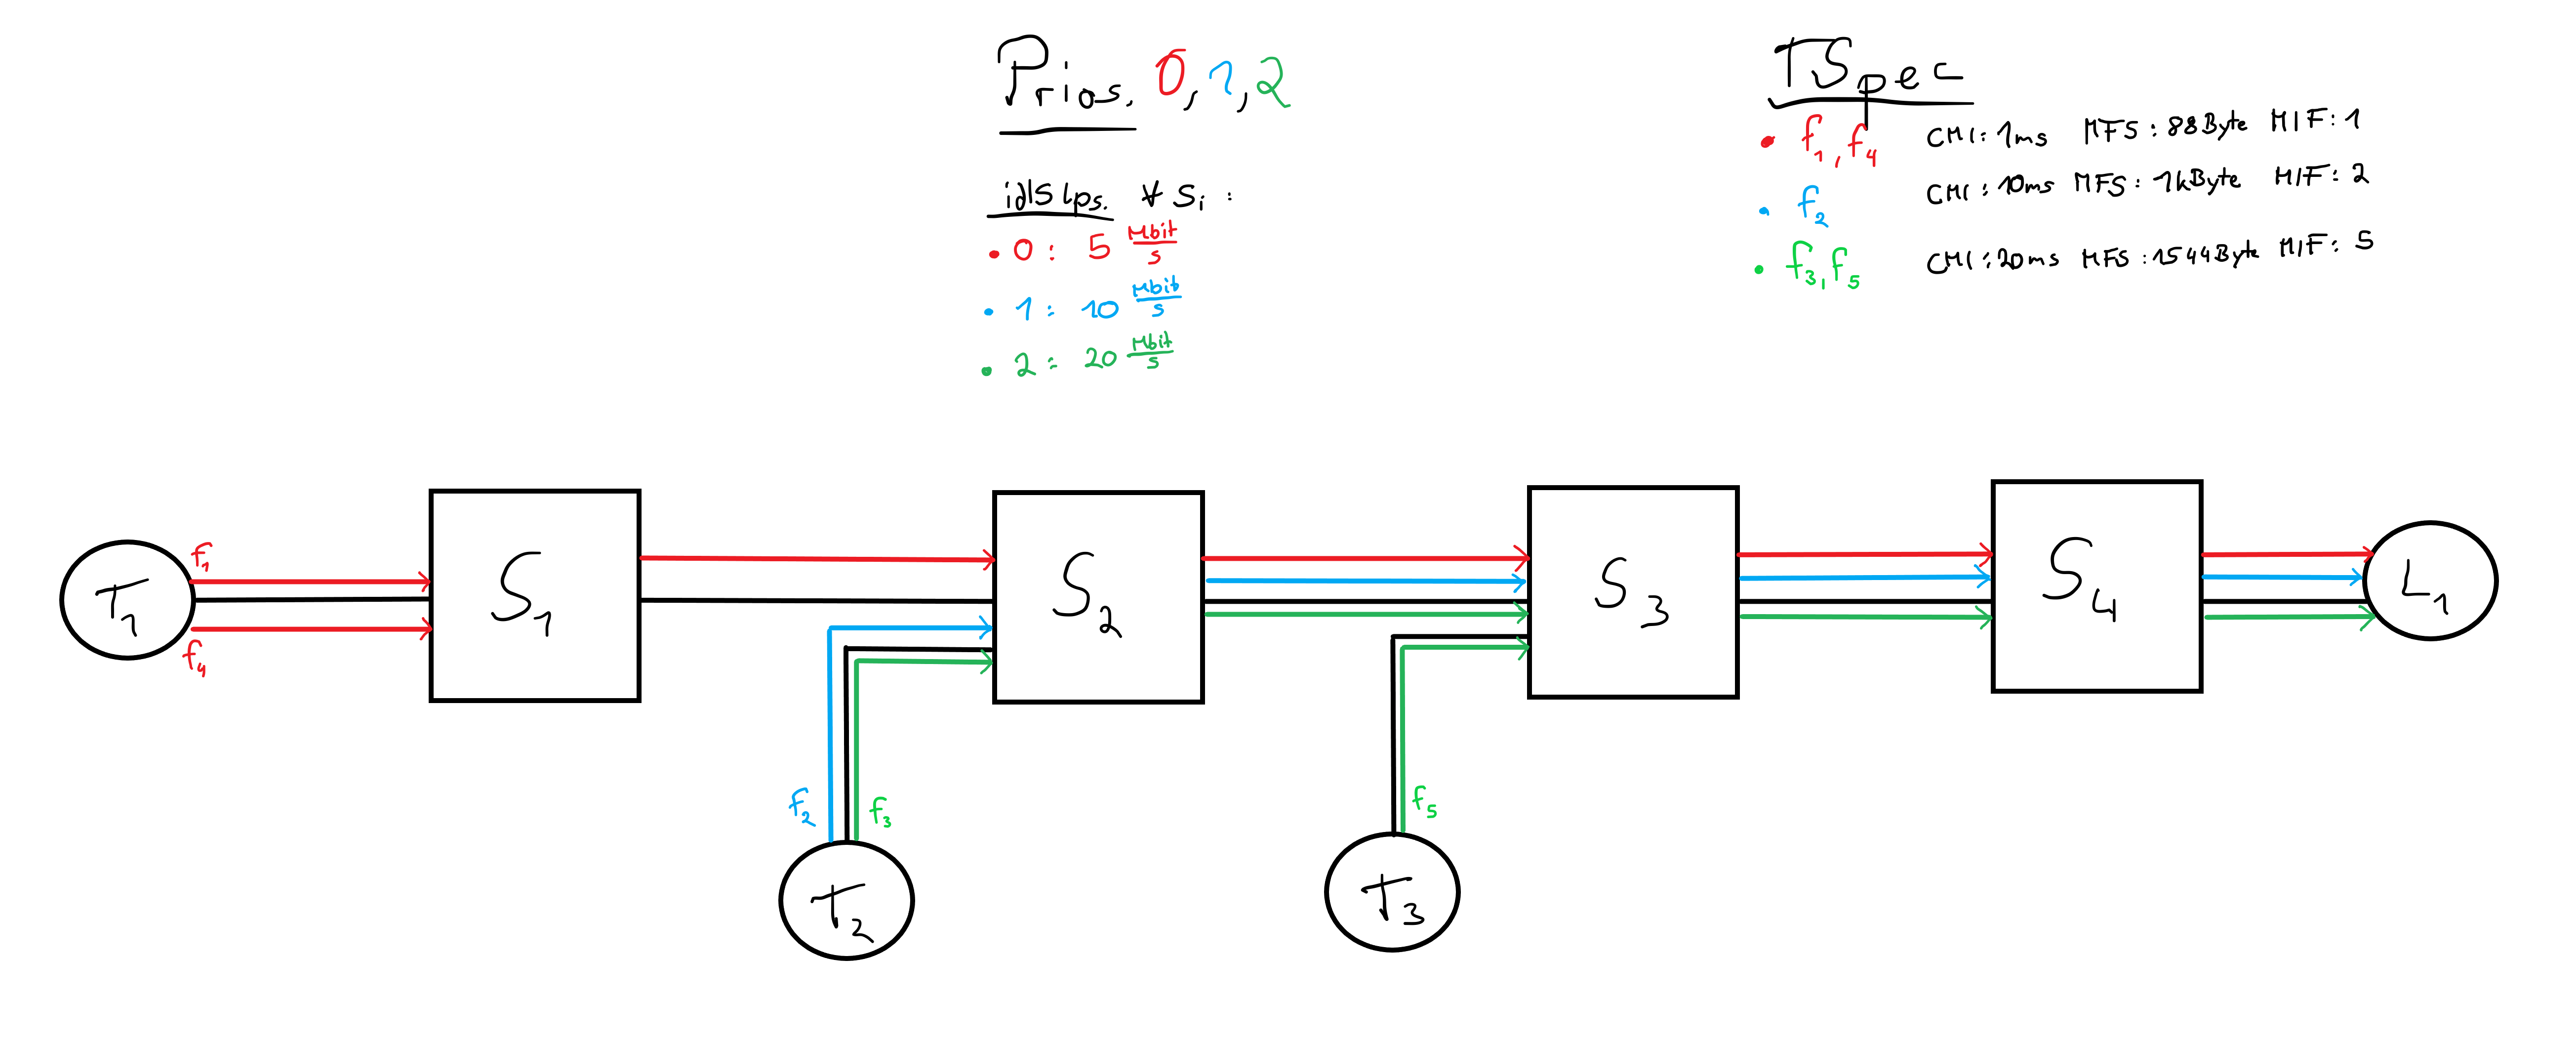 Prios. 0, 1, 2
idlSlps. ∀ Si :
• 0 : 5 Mbit/s
• 1 : 10 Mbit/s
• 2 : 20 Mbit/s
TSpec
• f1, f4 CMI: 1ms MFS: 88Byte MIF: 1
• f2 CMI: 10ms MFS: 1kByte MIF: 2
• f3, f5 CMI: 20ms MFS: 1544Byte MIF: 5
f1
T1
f4
S1
S2
S3
S4
L1
f2
f3
f5
T2
T3